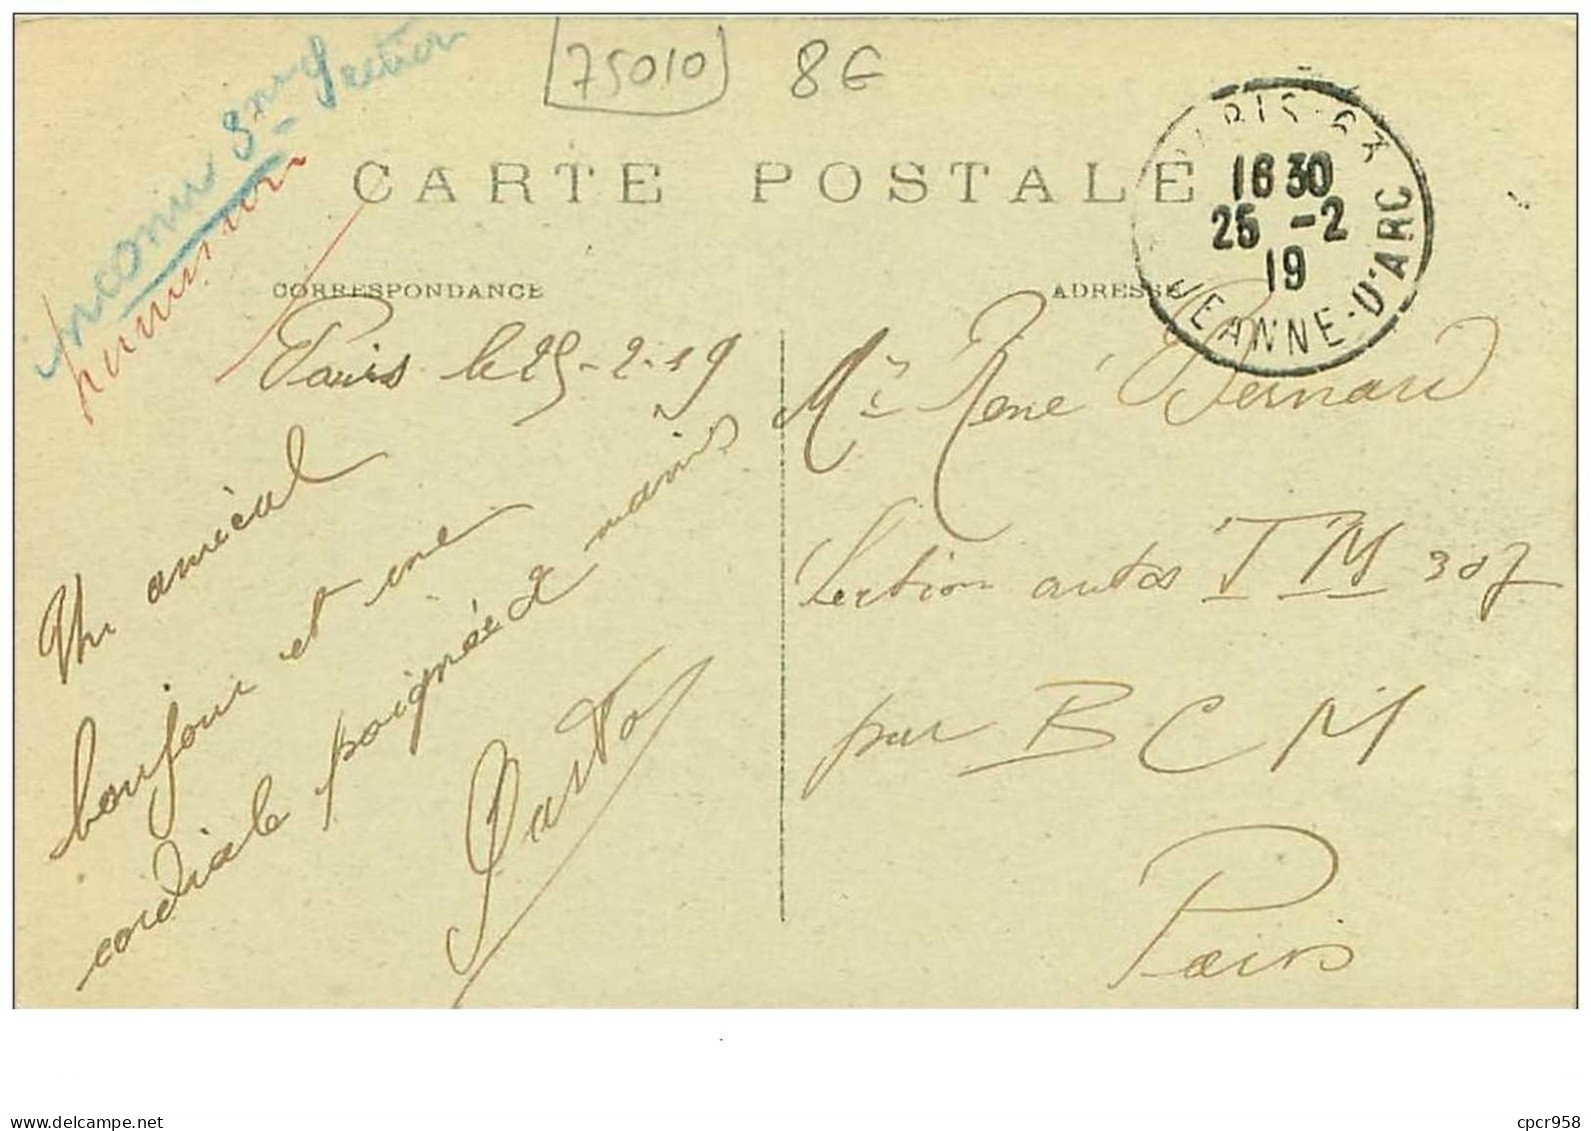 inconnu 3me Section
75010 8€
CARTE POSTALE
PARIS-6X
16 30
25 -2
19
JEANNE-D'ARC
CORRESPONDANCE
ADRESSE
Paris le 25-2-19
Un amical
bonjour et une
cordiale poignée de mains
Mr René Bernard
Section autos TM 307
par BCM
Paris
www.delcampe.net
cpcr958